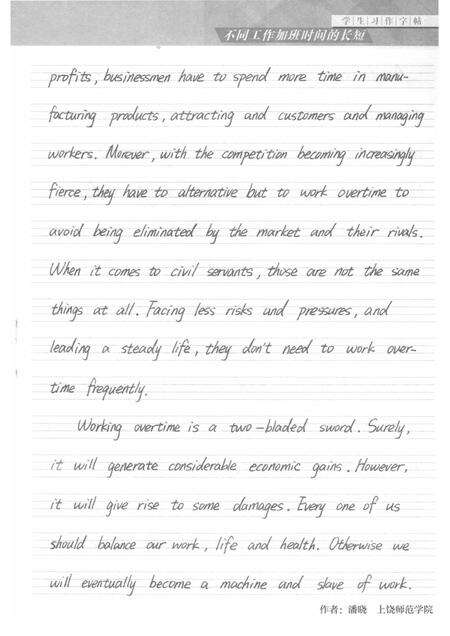 学生习作字帖
不同工作加班时间的长短
profits, businessmen have to spend more time in manu-
facturing products, attracting and customers and managing
workers. Morever, with the competition becoming increasingly
fierce, they have to alternative but to work overtime to
avoid being eliminated by the market and their rivals.
When it comes to civil servants, those are not the same
things at all. Facing less risks and pressures, and
leading a steady life, they don't need to work over-
time frequently.
Working overtime is a two-bladed sword. Surely,
it will generate considerable economic gains. However,
it will give rise to some damages. Every one of us
should balance our work, life and health. Otherwise we
will eventually become a machine and slave of work.
作者：潘晓 上饶师范学院